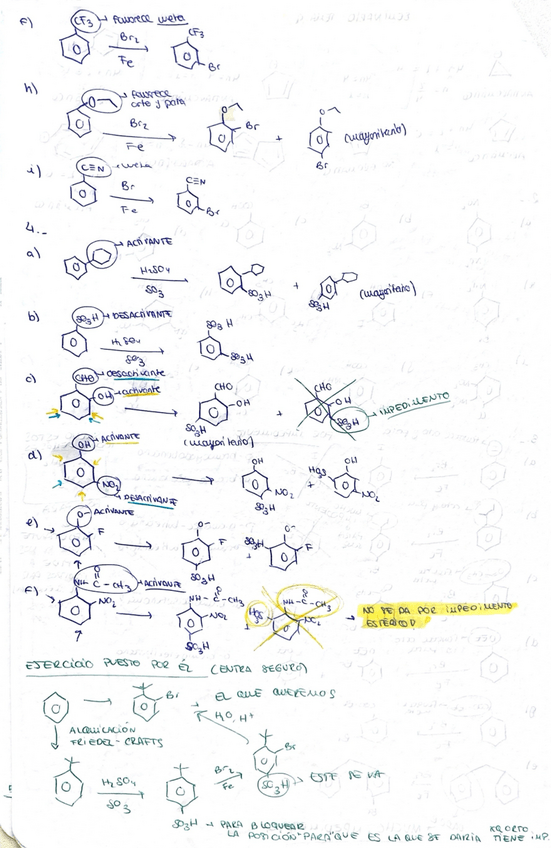 f) CF3 → Favorece meta Br2 Fe CF3 Br
h) O Favorece orto y para Br2 Fe O Br + O Br (mayoritario)
i) C≡N → meta Br Fe C≡N Br
4.-
a) → ACTIVANTE H2SO4 SO3 SO3H + SO3H (mayoritario)
b) SO3H → DESACTIVANTE H2SO4 SO3 SO3H SO3H
c) CHO → desactivante OH → activante CHO OH SO3H (mayoritario) + CHO OH SO3H → IMPEDIMENTO
d) OH → ACTIVANTE NO2 → DESACTIVANTE OH NO2 SO3H + HO3S OH NO2
e) O- ACTIVANTE F O- F SO3H + SO3H O- F
f) NH-C-CH3 O → ACTIVANTE NO2 NH-C-CH3 O NO2 SO3H + HO3S NH-C-CH3 O NO2 → NO SE DA POR IMPEDIMENTO
ESTÉRICO
EJERCICIO PUESTO POR ÉL (ENTRA SEGURO)
Br → EL QUE QUEREMOS
H2O, H+
ALQUILACIÓN
FRIEDEL-CRAFTS
Br
H2SO4 SO3 Br2 Fe SO3H → ESTE SE VA
SO3H → PARA BLOQUEAR
LA POSICIÓN "PARA" QUE ES LA QUE SE DARÍA XQ ORTO TIENE IMP.